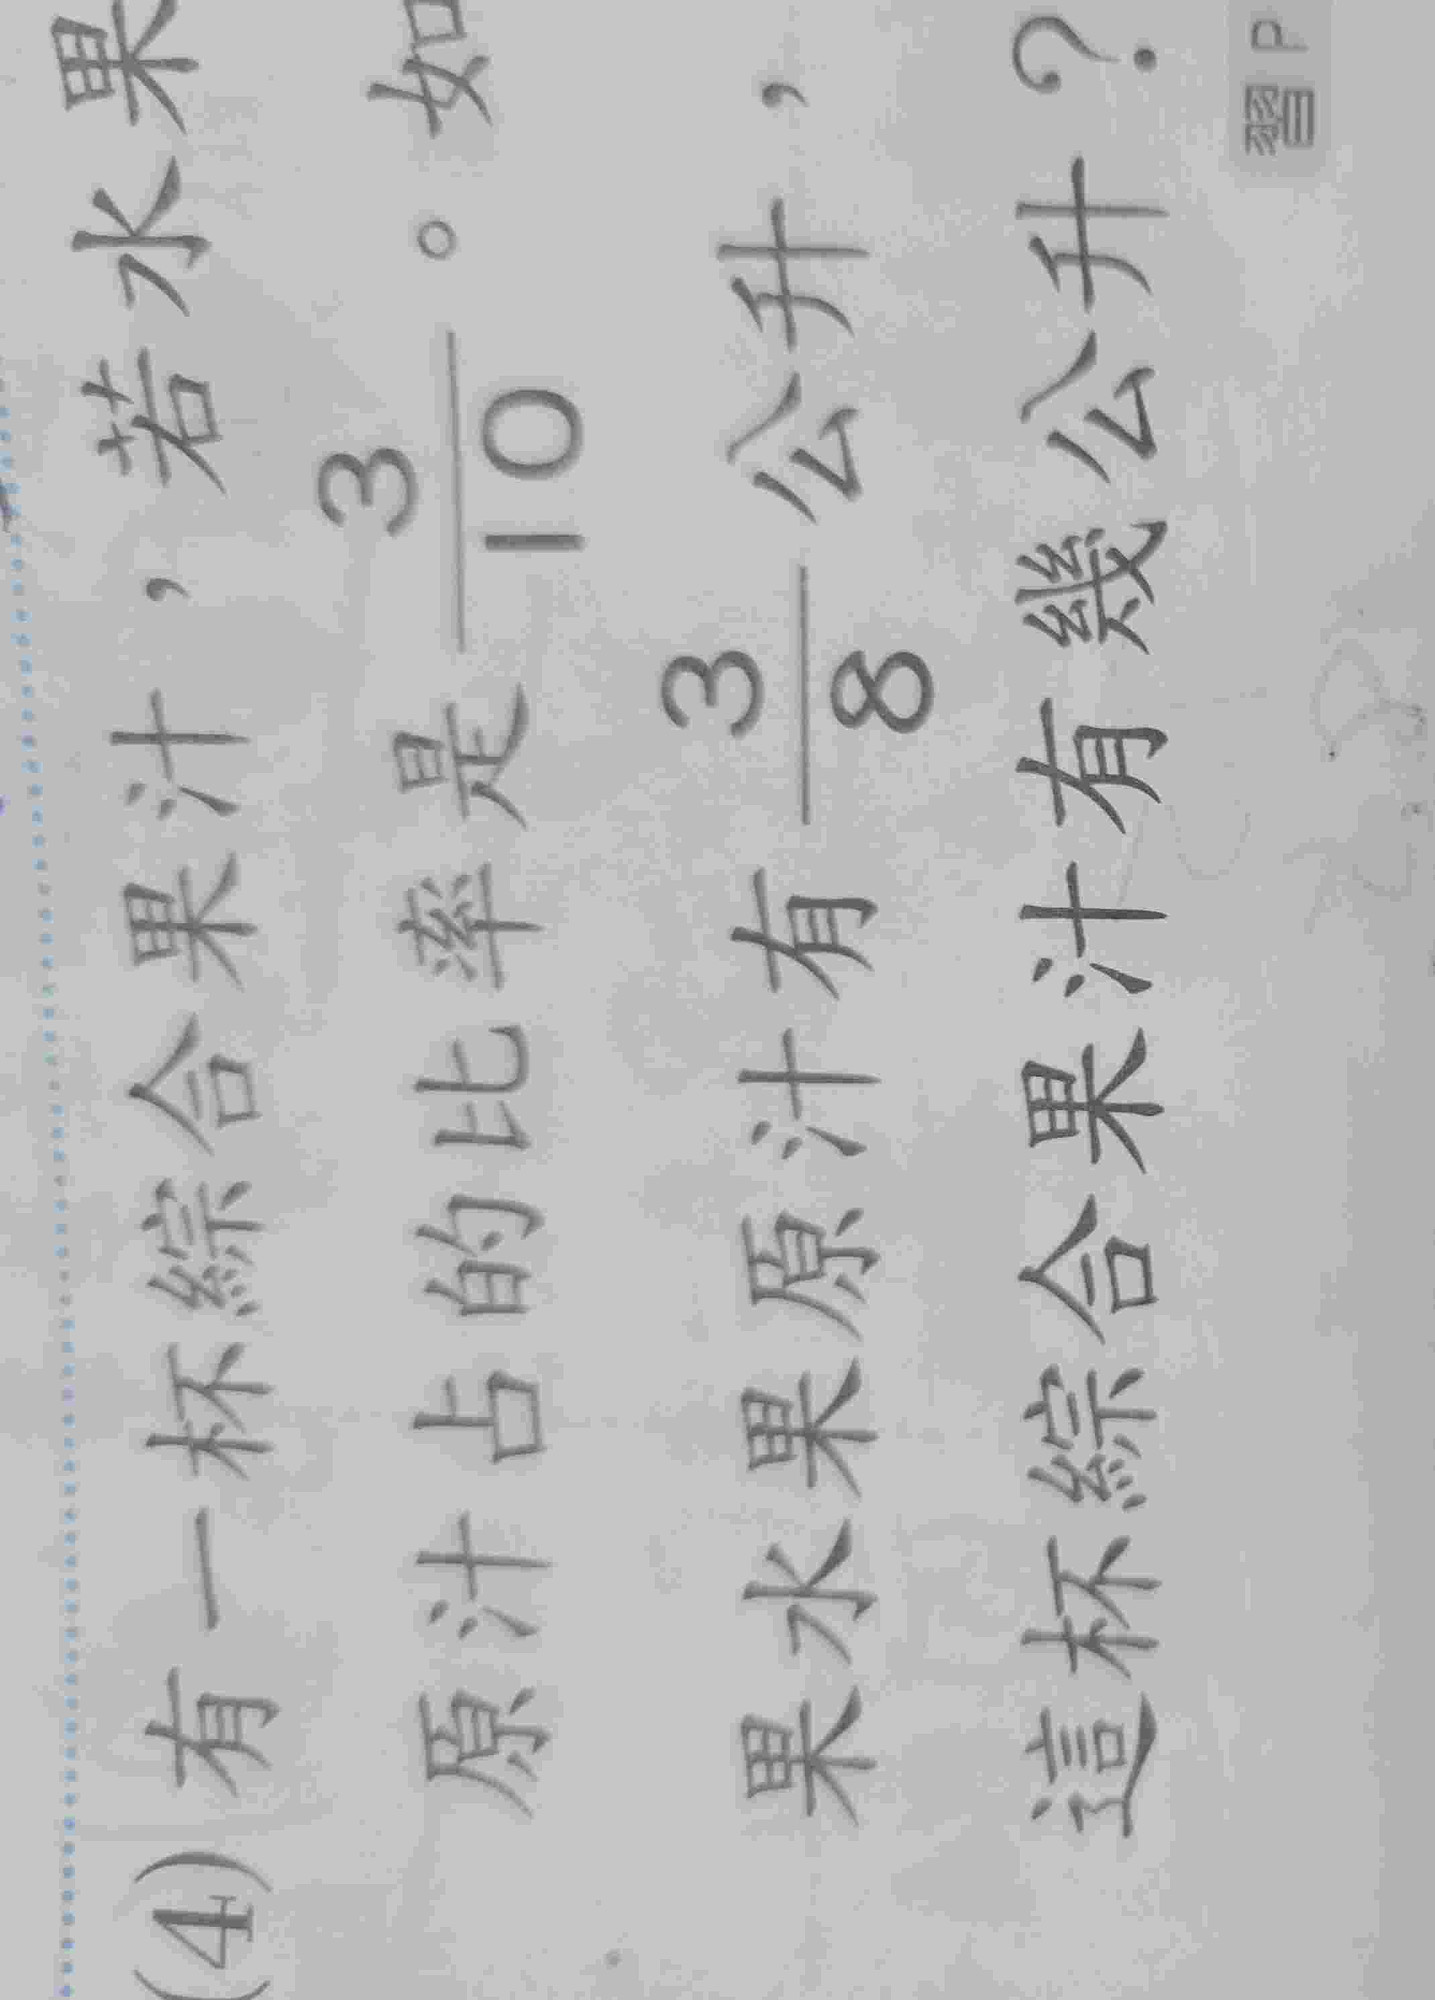 (4) 有一杯綜合果汁，若水果
原汁占的比率是 3/10 。如
果水果原汁有 3/8 公升，
這杯綜合果汁有幾公升？
習 P